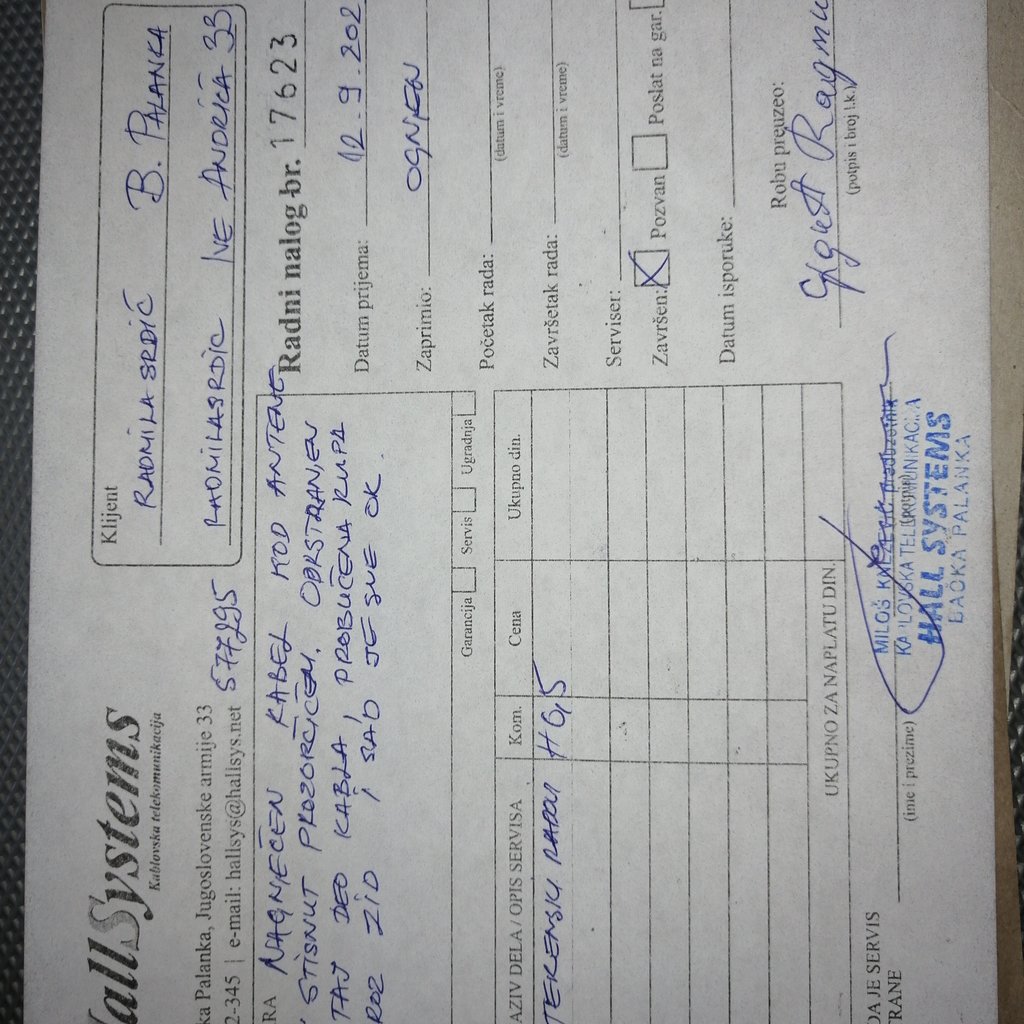 HallSystems
Kablovska telekomunikacija
ka Palanka, Jugoslovenske armije 33
2-345 | e-mail: hallsys@hallsys.net 577295
Klijent
RADMILA SRDIĆ B. PALANKA
RADMILASRDIC IVE ANDRIĆA 33
RA NAGNJEČEN KABEL KOD ANTENE
STISNUT PROZORČIĆEM. ODRSTRANJEN
TAJ DEO KABLA, PROBUČENA RUPA
ROZ ZID, SAD JE SVE OK.
Garancija Servis Ugradnja
Radni nalog br. 17623
Datum prijema: 12.9.202
Zaprimio: OGNJEN
Početak rada:
(datum i vreme)
Završetak rada:
(datum i vreme)
Serviser:
Završen: X Pozvan Poslat na gar.
Datum isporuke:
Robu preuzeo:
(potpis i broj l.k.)
AZIV DELA / OPIS SERVISA Kom. Cena Ukupno din.
TEKENSKI H0,5
UKUPNO ZA NAPLATU DIN.
DAJE SERVIS
RANE
(ime i prezime)
MILOŠ KNEZEVIĆ preduzetnik
KABLOVSKA TELEKOMUNIKACIJA
HALL SYSTEMS
BAČKA PALANKA